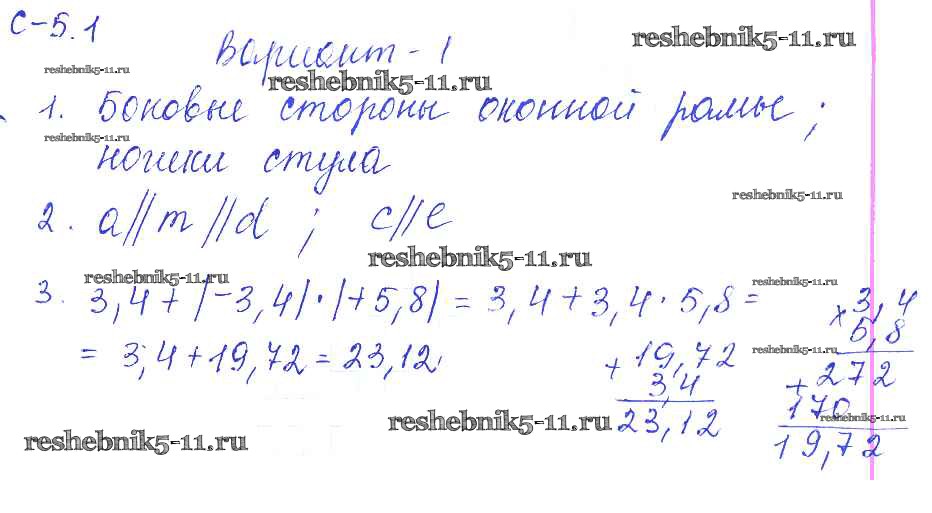 С-5.1
Вариант-1
reshebnik5-11.ru
reshebnik5-11.ru
reshebnik5-11.ru
1. Боковые стороны оконной рамы;
reshebnik5-11.ru
ножки стула
reshebnik5-11.ru
2. a//m//d ; c//e
reshebnik5-11.ru
reshebnik5-11.ru
reshebnik5-11.ru
3. 3,4+|-3,4|·|+5,8| = 3,4+3,4·5,8 =
= 3,4+19,72 = 23,12.
reshebnik5-11.ru
+19,72
3,4
23,12
×3,4
5,8
+272
170
19,72
reshebnik5-11.ru
reshebnik5-11.ru
reshebnik5-11.ru